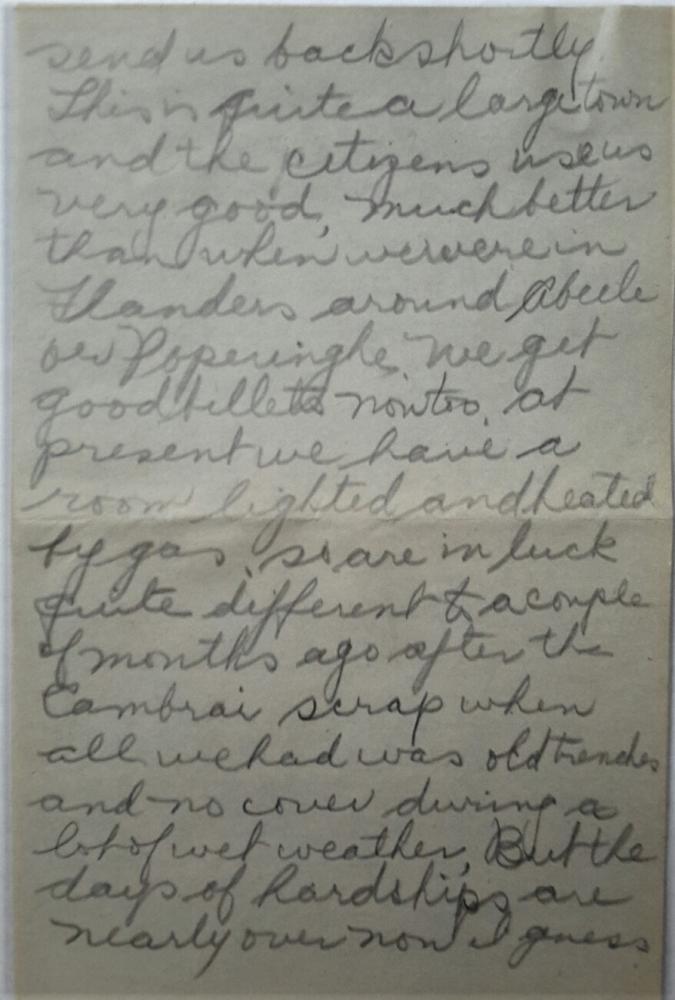 send us back shortly
This is quite a large town
and the citizens use us
very good, much better
than when we were in
Flanders around Abeele
or Poperinghe, we get
good billets now too, at
present we have a
room lighted and heated
by gas, so are in luck
quite different to a couple
of months ago after the
Cambrai scrap when
all we had was old trenches
and no cover during a
lot of wet weather, But the
days of hardships are
nearly over now I guess